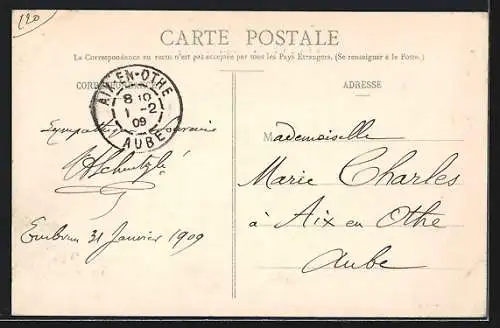 120
CARTE POSTALE
La Correspondance au recto n'est pas acceptée par tous les Pays Étrangers. (Se renseigner à la Poste.)
CORRESPONDANCE
ADRESSE
AIX-EN-OTHE
8 10
1 -2
09
AUBE
Sympathique souvenir
Embrun 31 Janvier 1909
Mademoiselle
Marie Charles
à Aix en Othe
Aube